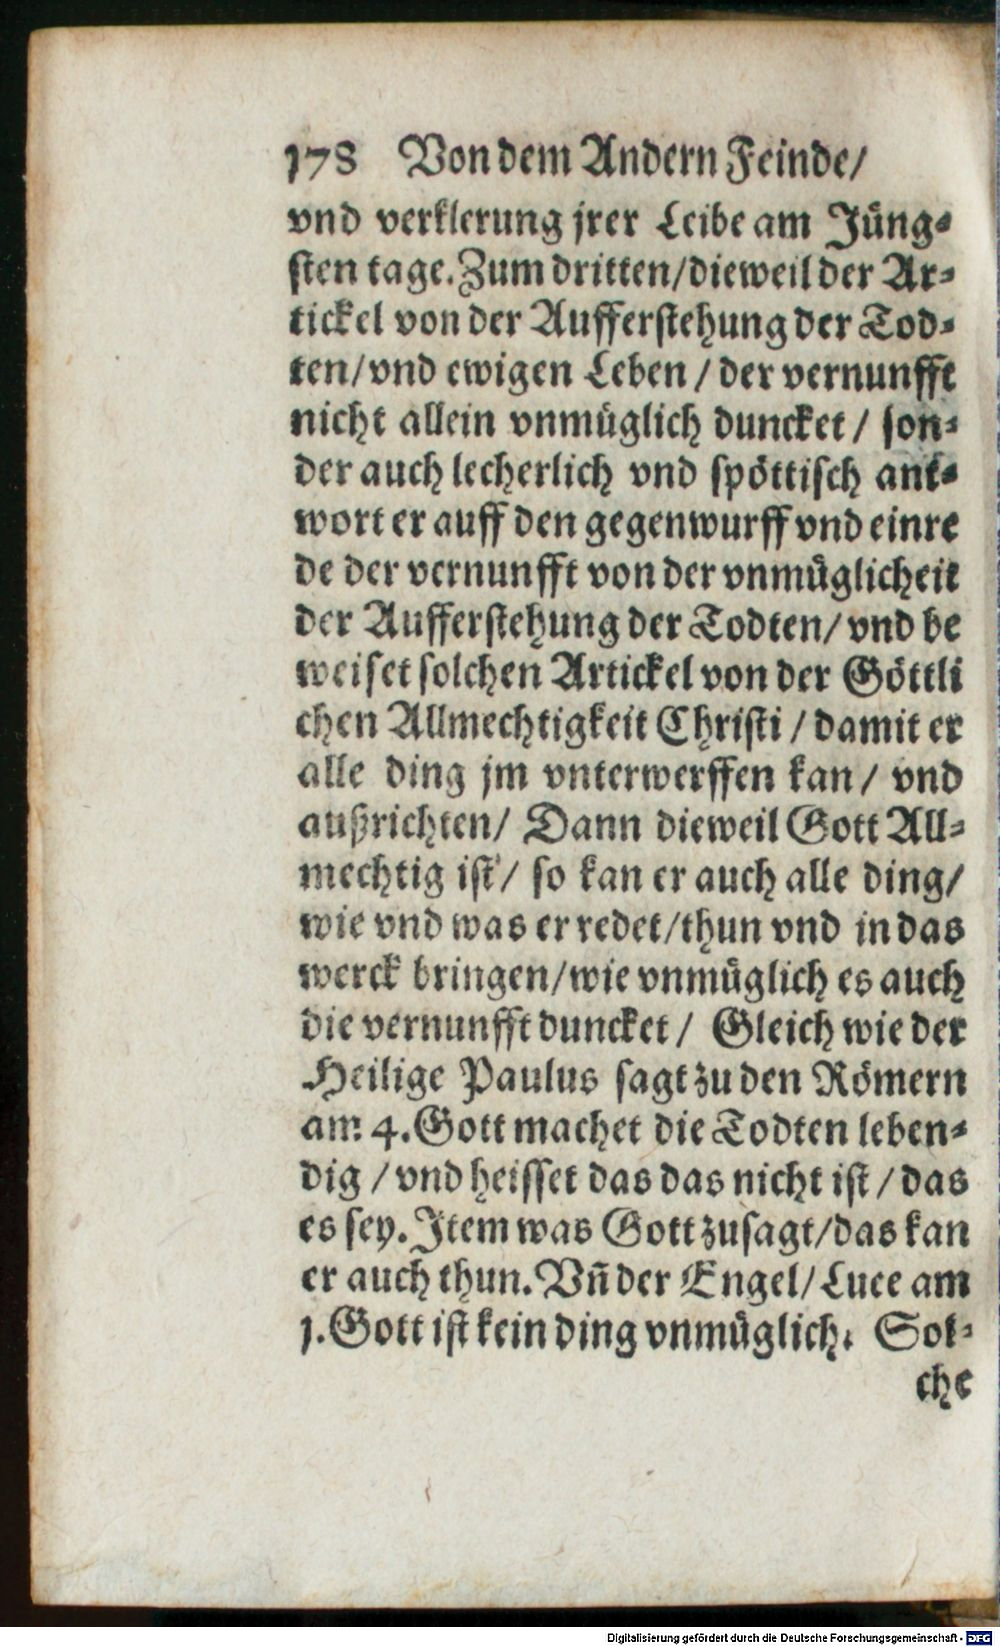 178 Von dem Andern Feinde/
vnd verklerung jrer Leibe am Jüng-
sten tage. Zum dritten/dieweil der Ar-
tickel von der Aufferstehung der Tod-
ten/vnd ewigen Leben / der vernunfft
nicht allein vnmüglich duncket / son-
der auch lecherlich vnd spöttisch ant-
wort er auff den gegenwurff vnd einre
de der vernunfft von der vnmüglicheit
der Aufferstehung der Todten/ vnd be
weiset solchen Artickel von der Göttli
chen Allmechtigkeit Christi / damit er
alle ding jm vnterwerffen kan/ vnd
außrichten/ Dann dieweil Gott All-
mechtig ist/ so kan er auch alle ding/
wie vnd was er redet/thun vnd in das
werck bringen/wie vnmüglich es auch
die vernunfft duncket / Gleich wie der
Heilige Paulus sagt zu den Römern
am 4. Gott machet die Todten leben-
dig / vnd heisset das das nicht ist / das
es sey. Item was Gott zusagt/das kan
er auch thun. Vñ der Engel/ Luce am
1. Gott ist kein ding vnmüglich. Sol-
che
Digitalisierung gefördert durch die Deutsche Forschungsgemeinschaft - DFG